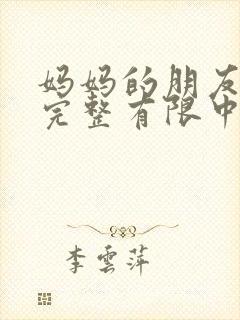 妈妈的朋友
完整有限中
李雲萍